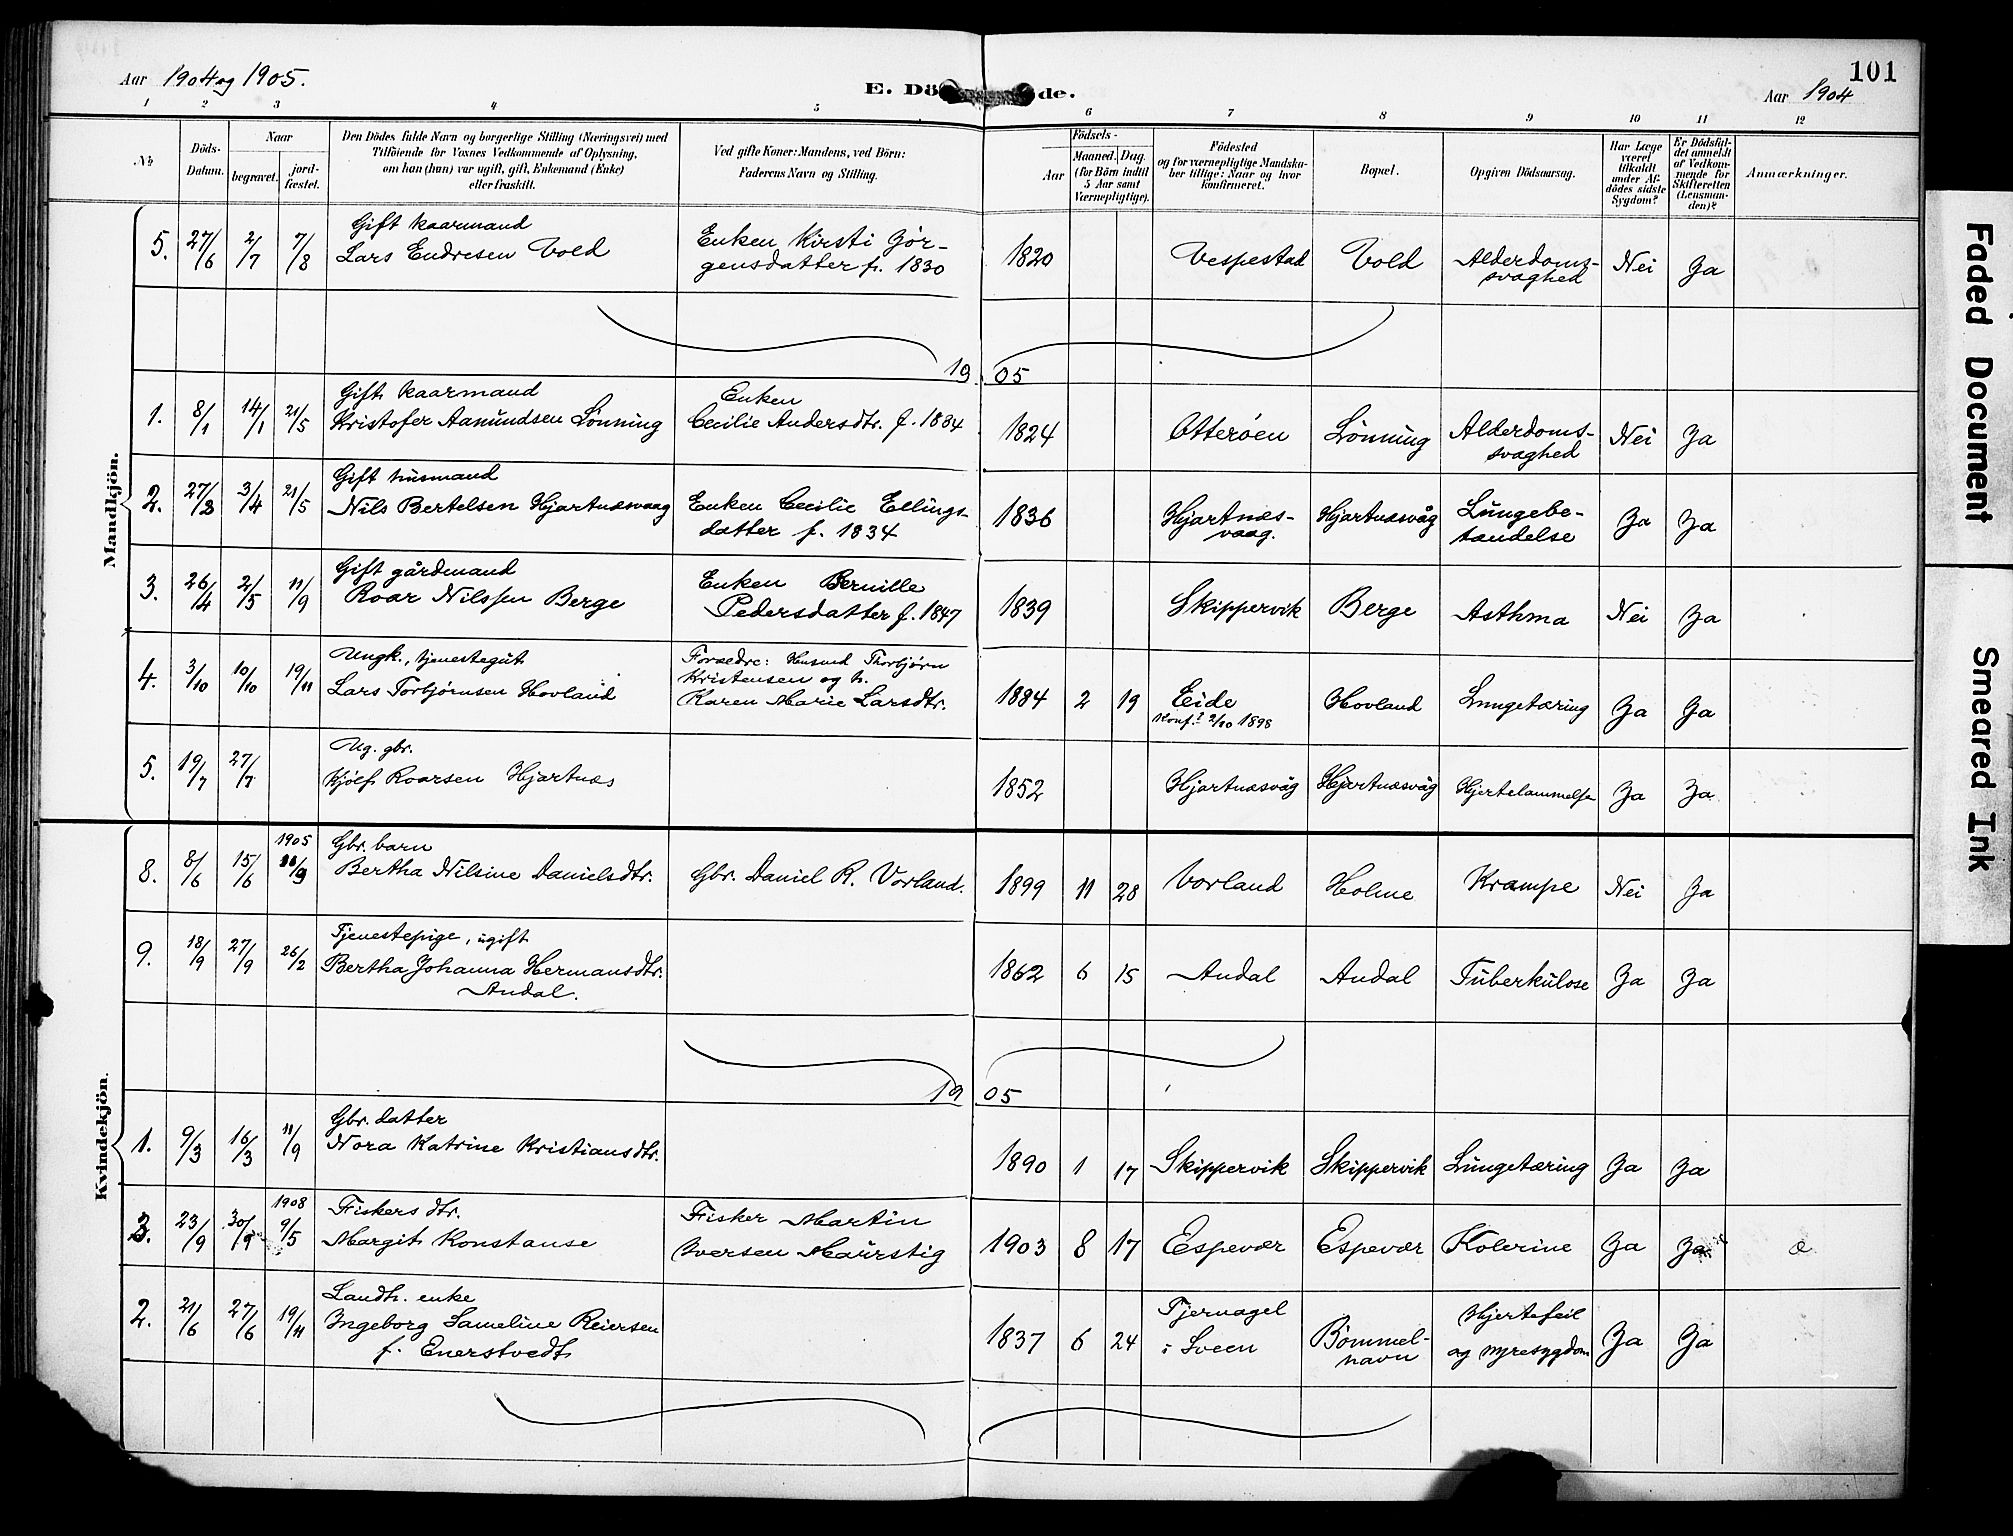 Aar 1904 og 1905.
E. Dö de.
101
Aar 1904
1 2 3 4 5 6 7 8 9 10 11 12
No
Döds-
Datum.
Naar
begravet.
jord-
fæstet.
Den Dödes fulde Navn og borgerlige Stilling (Næringsvei) med
Tilföiende for Voxnes Vedkommende af Oplysning,
om han (hun) var ugift, gift, Enkemand (Enke)
eller fraskilt.
Ved gifte Koner: Mandens, ved Börn:
Faderens Navn og Stilling.
Födsels-
Aar
Maaned. Dag.
(for Börn indtil
5 Aar samt
Værnepligtige).
Födested
og for værnepligtige Mandska-
ber tillige: Naar og hvor
konfirmeret.
Bopæl.
Opgiven Dödsaarsag.
Har Læge
været
tilkaldt
under Af-
dödes sidste
Sygdom?
Er Dödsfal-
det anmeldt
af Vedkom-
mende for
Skifteretten
(Lensman-
den)?
Anmærkninger.
Mandkjön.
5. 27/6 2/7 7/8
Gift kaarmand
Lars Endresen Vold
Enken Kirsti Jör-
gensdatter f. 1830
1820 Vespestad Vold
Alderdoms-
svaghed
Nei Ja
19 05
1. 8/1 14/1 21/5
Gift kaarmand
Kristofer Aamundsen Lönning
Enken
Cecilie Andersdtr. f. 1834
1824 Otteröen Lönning
Alderdoms-
svaghed
Nei Ja
2. 27/3 3/4 21/5
Gift husmand
Nils Bertelsen Hjartnæsvaag
Enken Cecilie Ellings-
datter f. 1834
1836
Hjartnæs-
vaag.
Hjartnæsvåg
Lungebe-
tændelse
Ja Ja
3. 26/4 2/5 11/9
Gift gårdmand
Roar Nilssen Berge
Enken Bernille
Pedersdatter f. 1847
1839 Skippervik Berge Asthma Nei Ja
4. 3/10 10/10 19/11
Ungk., tjenestegut
Lars Torbjørnsen Hovland
Forældre: Husmd Thorbjørn
Kristensen og h.
Karen Marie Larsdtr.
1884 2 19 Eide
Konf. 2/10 1898
Hovland Lungetæring Ja Ja
5. 19/7 27/7
Ug. gbr.
Kjölf Roarsen Hjartnæs
1852 Hjartnæsvåg Hjartnæsvåg Hjertelammelse Ja Ja
Kvindekjön.
8. 8/6 15/6 1905 11/9
Gbr. barn
Bertha Nilsine Danielsdtr.
Gbr. Daniel R. Vorland.
1899 11 28 Vorland Holme Krampe Nei Ja
9. 18/9 27/9 26/2
Tjenestepige, ugift
Bertha Johanna Hermansdtr.
Andal.
1862 6 15 Andal Andal Tuberkulose Ja Ja
19 05
1. 9/3 16/3 11/9
Gbr. datter
Nora Katrine Kristiansdtr.
1890 1 17 Skippervik Skippervik Lungetæring Ja Ja
3. 23/9 30/9 1908 9/5
Fiskers dtr.
Margit Konstanse
Fisker Martin
Iversen Maurstig
1903 8 17 Espevær Espevær Kolerine Ja Ja
2. 21/6 27/6 19/11
Landh. enke
Ingeborg Sameline Reiersen
f. Enerstvedt
1837 6 24
Tjernagel
i Sveen
Bömmel-
havn
Hjertefeil
og nyresygdom
Ja Ja
Faded Document
Smeared Ink